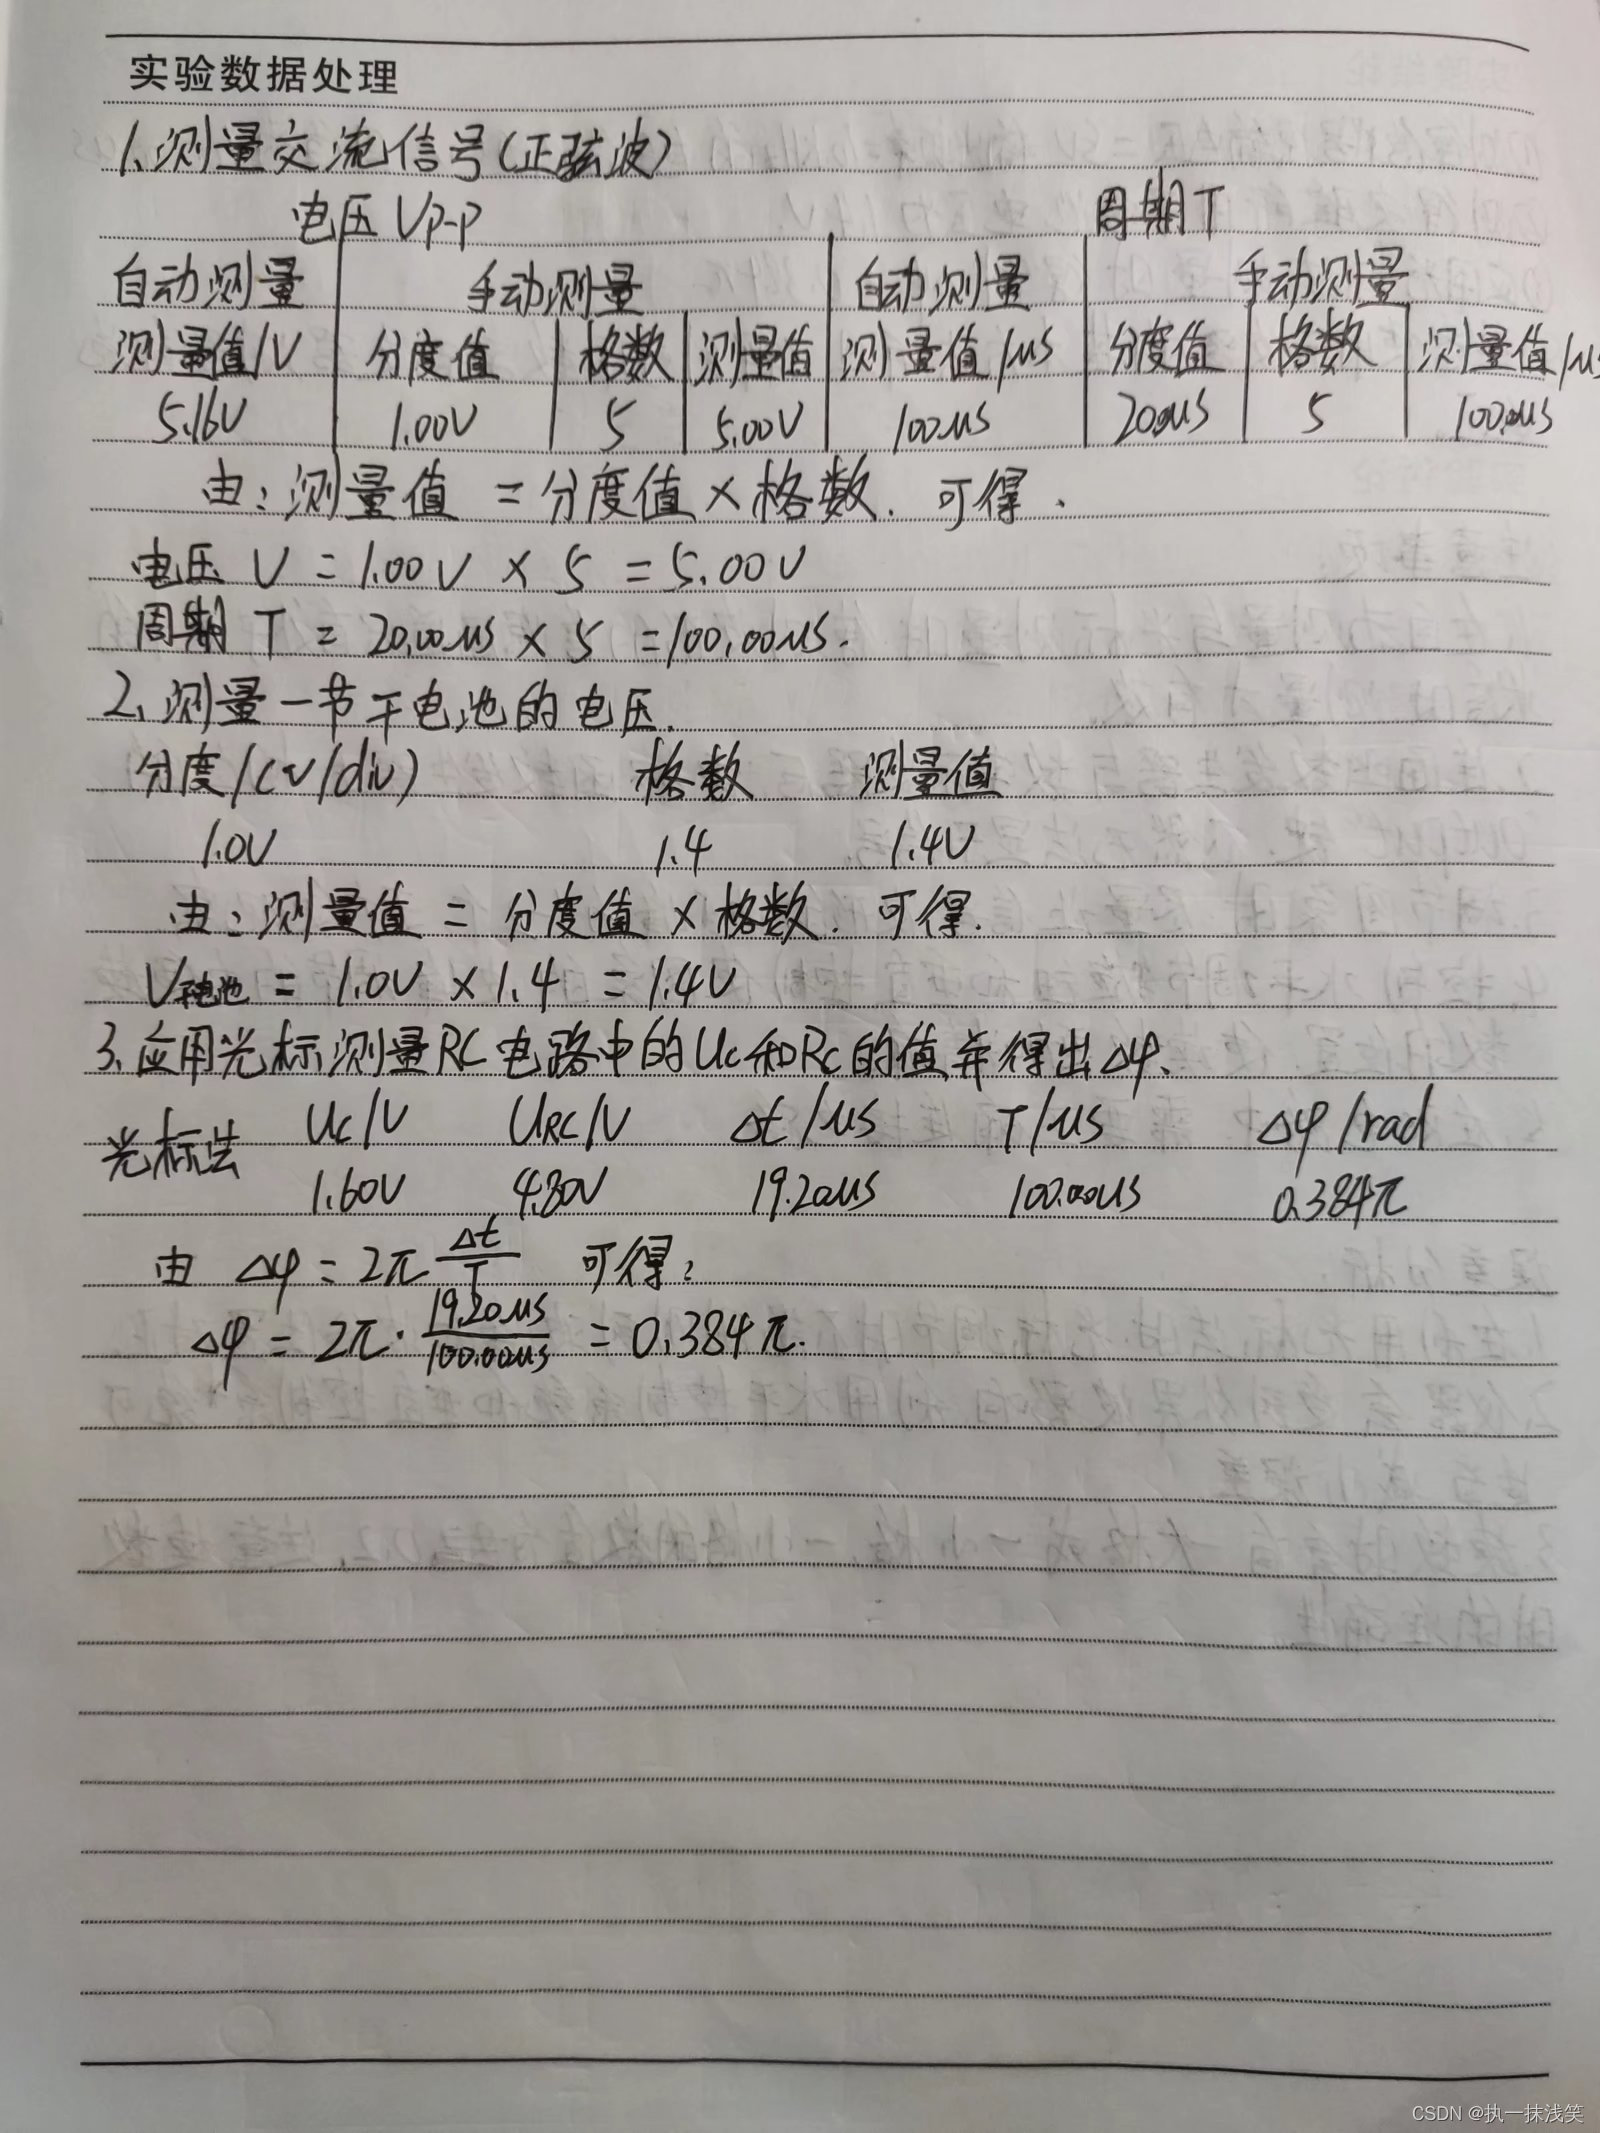 实验数据处理
1、测量交流信号(正弦波)
电压 Vp-p 周期T
自动测量 手动测量 自动测量 手动测量
测量值/V 分度值 格数 测量值 测量值/μs 分度值 格数 测量值/μs
5.16V 1.00V 5 5.00V 100μs 20μs 5 100μs
由：测量值 = 分度值 × 格数. 可得.
电压 V = 1.00V × 5 = 5.00V
周期 T = 20.00μs × 5 = 100.00μs.
2、测量一节干电池的电压.
分度/(v/div) 格数 测量值
1.0V 1.4 1.4V
由：测量值 = 分度值 × 格数. 可得.
V干电池 = 1.0V × 1.4 = 1.4V
3、应用光标测量RC电路中的Uc和Rc的值,并得出Δφ、
光标法 Uc/V URC/V Δt/μs T/μs Δφ/rad
1.60V 4.80V 19.20μs 100.00μs 0.384π
由 Δφ = 2π Δt/T 可得：
Δφ = 2π · 19.20μs/100.00μs = 0.384π.
CSDN @执一抹浅笑